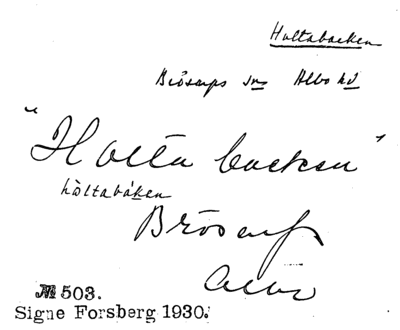 Holtabacken
Brösarps sn Albo hd
"Holta backen"
hòltabáken
Brösarp
Albo
№ 503.
Signe Forsberg 1930.